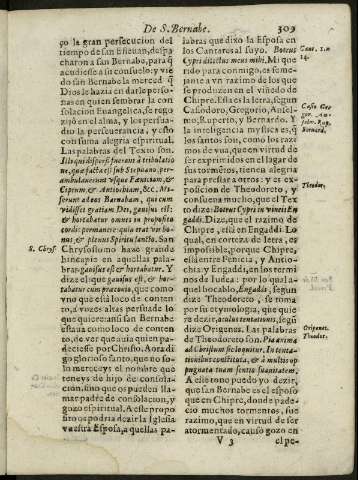 De S. Bernabe.
309
ço la gran persecucion del
tiempo de san Esteuan, despa
charon a san Bernabe, para q̃
acudiesse a su consuelo; y vie
do san Bernabe la merced q̃
Dios les hazia en darle perso-
nas en quien sembrar la con
solacion Euangelica, se rego
zijò en el alma, y los persua-
dio la perseuerancia, y esto
con suma alegria espiritual.
Las palabras del Texto son.
Illi quidem dispersi fuerant à tribulatio
ne, quæ facta est sub Stephano, per-
ambulauerunt vsque Fœnicem, &
Ciprum, & Antiochiam, &c. Mi-
serunt adeos Barnabam, qui cum
vidisset gratiam Dei, gauisus est:
& hortabatur omnes in proposito
cordis permanere: quia erat vir bo-
nus, & plenus Spiritu sancto. San
S. Chrys
Chrysostomo haze grande
hincapie en aquellas pala-
bras: gauisus est & hortabatur. Y
dize el: que gauisus est, & hor-
tabatur cum præconia, que como
vno que està loco de conten
to, a vozes altas persuade lo
que quiere: assi san Bernabe
estaua como loco de conten
to, de ver que auia quien pa-
deciesse por Christo. Aora di
go glorioso santo, que no so-
lo mereceys el nombre que
teneys de hijo de consola-
cion, sino que os pueden lla-
mar padre de consolacion, y
gozo espiritual. A este propo
sito os podria dezir la Iglesia
vuestra Esposa, a quellas pa-
labras que dixo la Esposa en
los Cantares al suyo. Botrus
Cypri dilectus meus mihi. Mi que
rido para conmigo, es seme-
jante a vn razimo de los que
se produzen en el viñedo de
Chipre. Esta es la letra, segun
Casiodoro, Gregorio, Ansel-
mo, Ruperto, y Bernardo. Y
la inteligencia mystica es, q̃
los santos son, como los razi
mos de vua, que en virtud de
ser exprimidos en el lagar de
sus tormẽtos, tienen alegria
para predicar a otros: y es ex
posicion de Theodoreto, y
consuena mucho, que el Tex
to dize: Botrus Cypri in vineis En
gaddi. Dize, que el razimo de
Chipre, està en Engaddi. Lo
qual, en corteza de letra, es
impossible, porque Chipre,
està entre Fenicia, y Antio-
chia y Engaddi, en los termi
nos de Iudea: por lo qual a-
quel bocablo, Engaddi, segun
dize Theodoreto, se toma
por su etymologia, que quie
re dezir, oculus tentationis, segũ
dize Origenes. Las palabras
de Theodoreto son. Pia anima
ad Christum sic loquitur. In tenta-
tionibus constituta, & à multis op
pugnata tuam sentis suauitatem.
A este tono puedo yo dezir,
que san Bernabe es el esposo
que en Chipre, donde pade-
cio muchos tormentos, fue
razimo, que en virtud de ser
atormentado, causò gozo en
Cant. 1. n
14.
Casio. Gre
gor. An-
selm. Rup.
Bernard.
Theodor.
Origenes.
Theodor.
V 3
el pe-